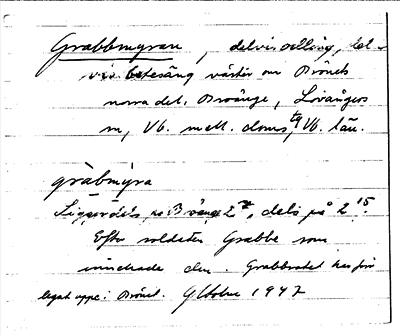 Grabbmyran, delvis odling, del-
vis betesäng väster om Bröncts
norra del. Broänge, Lövångers
sn, Vb. mell. doms, Vb. län.
gräbmýra
Ligger dels på Broänge 2, dels på 2 15.
Efter soldaten Grabbe som
innehade den. Grabbrotet har för
legat uppe i Brönct. G Holm 1947